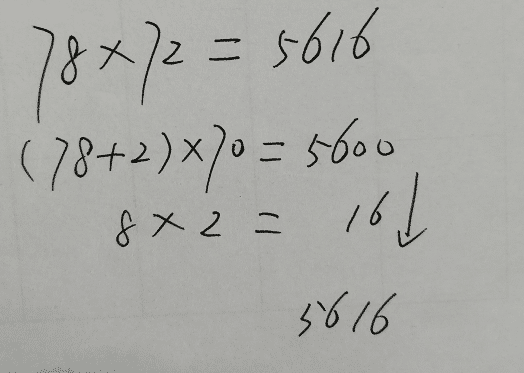 78×72=5616
(78+2)×70=5600
8×2= 16↓
5616